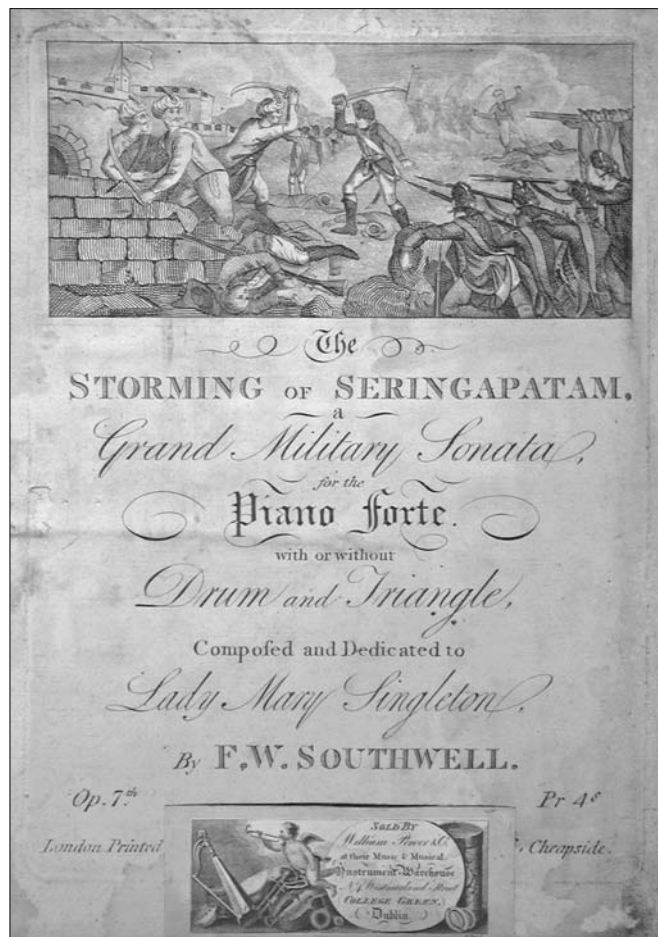 The
STORMING OF SERINGAPATAM,
a
Grand Military Sonata,
for the
Piano Forte.
with or without
Drum and Triangle,
Compoſed and Dedicated to
Lady Mary Singleton,
By F.W. SOUTHWELL.
Op. 7th Pr 4s
London Printed Cheapside.
SOLD BY
William Power & Co.
at their Music & Musical
Instrument Warehouse
No. 4 Westmorland Street
COLLEGE GREEN,
Dublin.